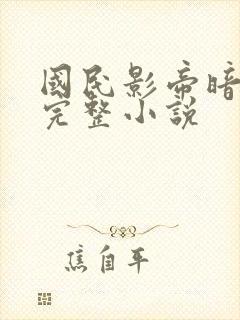 國民影帝暗
完整小說
焦自平